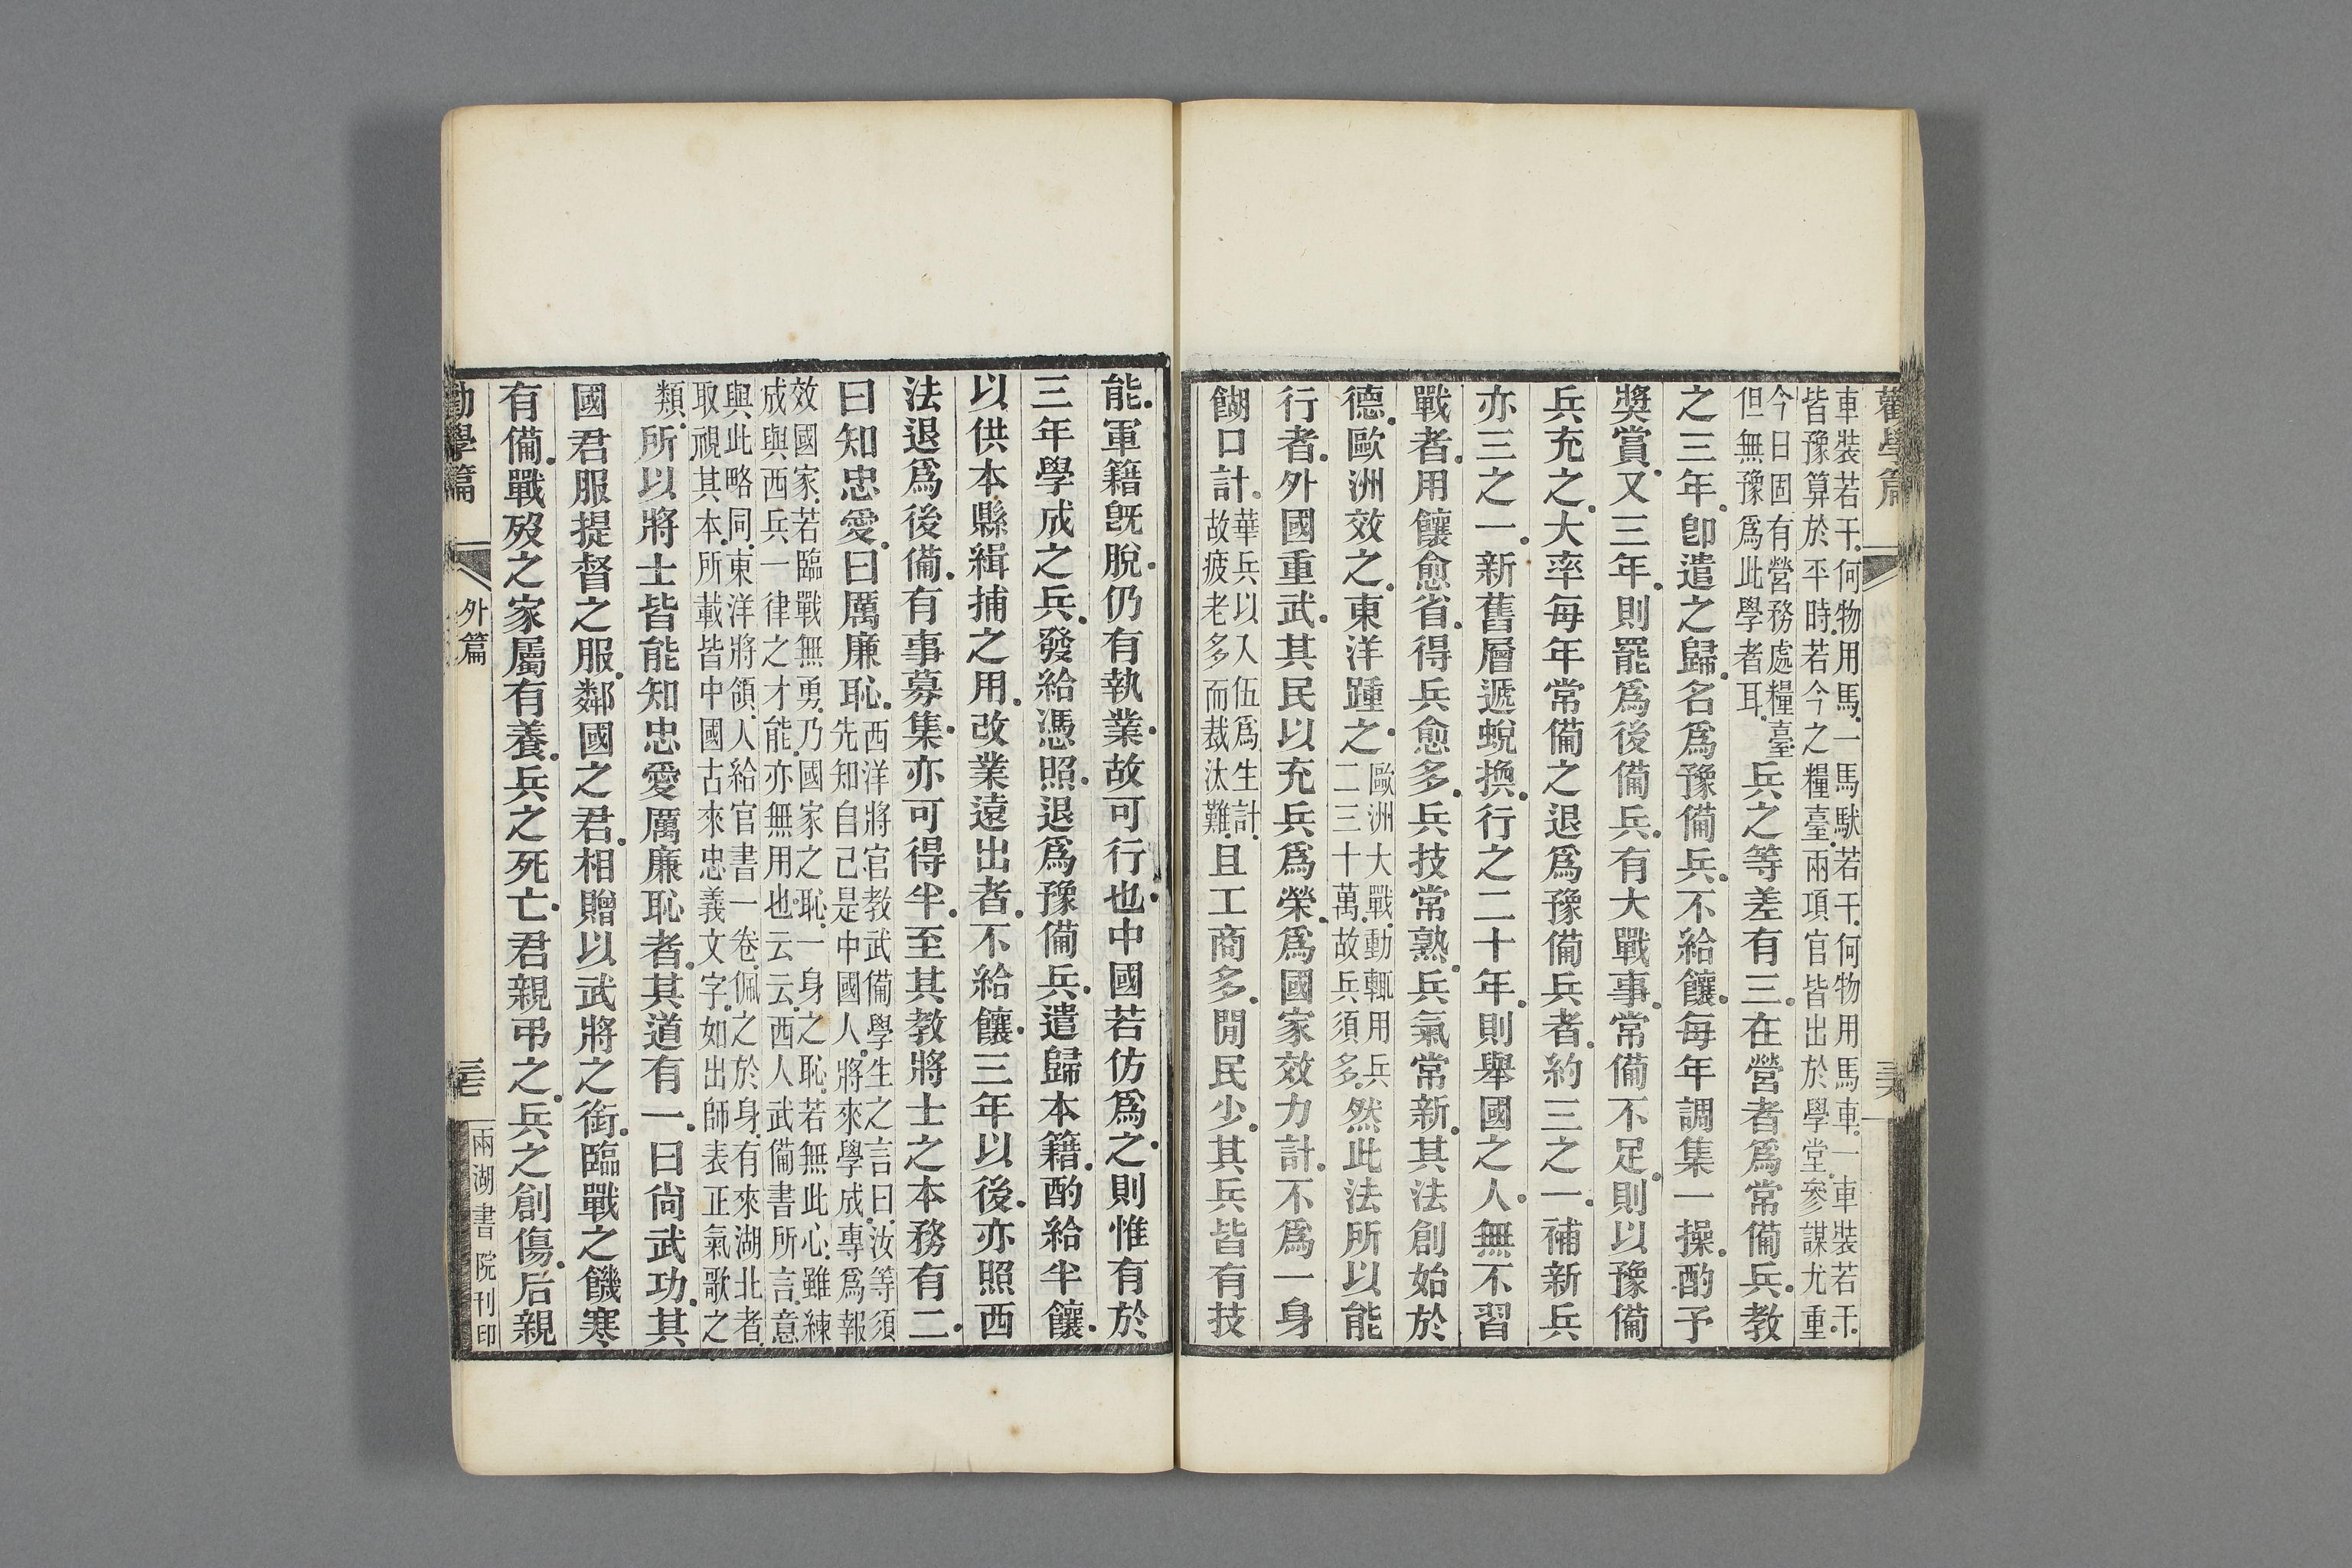 勸學篇
三十六
車裝若干。何物用馬。一馬馱若干。何物用馬車。一車裝若干。
皆豫算於平時。若今之糧臺。兩項官皆出於學堂。參謀尤重
今日固有營務處糧臺
但無豫爲此學者耳。
兵之等差有三。在營者爲常備兵。教
之三年。卽遣之歸。名爲豫備兵。不給饟。每年調集一操。酌予
獎賞。又三年。則罷爲後備兵。有大戰事。常備不足。則以豫備
兵充之。大率每年常備之退爲豫備兵者。約三之一。補新兵
亦三之一。新舊層遞蛻換。行之二十年。則舉國之人。無不習
戰者。用饟愈省。得兵愈多。兵技常熟。兵氣常新。其法創始於
德。歐洲效之。東洋踵之。
歐洲大戰。動輒用兵
二三十萬。故兵須多。
然此法所以能
行者。外國重武。其民以充兵爲榮。爲國家效力計。不爲一身
餬口計。
華兵以入伍爲生計。
故疲老多而裁汰難。
且工商多。閒民少。其兵皆有技
能。軍籍旣脫。仍有執業。故可行也。中國若仿爲之。則惟有於
三年學成之兵。發給憑照。退爲豫備兵。遣歸本籍。酌給半饟。
以供本縣緝捕之用。改業遠出者。不給饟。三年以後。亦照西
法退爲後備。有事募集。亦可得半。至其教將士之本務有二。
曰知忠愛。曰厲廉恥。
西洋將官教武備學生之言曰。汝等須
先知自己是中國人。將來學成。專爲報
效國家。若臨戰無勇。乃國家之恥。一身之恥。若無此心。雖練
成與西兵一律之才能。亦無用也。云云。西人武備書所言。意
與此略同。東洋將領。人給官書一卷。佩之於身。有來湖北者。
取視其本。所載皆中國古來忠義文字。如出師表正氣歌之
類。
所以將士皆能知忠愛厲廉恥者。其道有一。曰尚武功。其
國君服提督之服。鄰國之君。相贈以武將之銜。臨戰之饑寒
有備。戰歿之家屬有養。兵之死亡。君親弔之。兵之創傷。后親
勸學篇
外篇
三十七
兩湖書院刊印